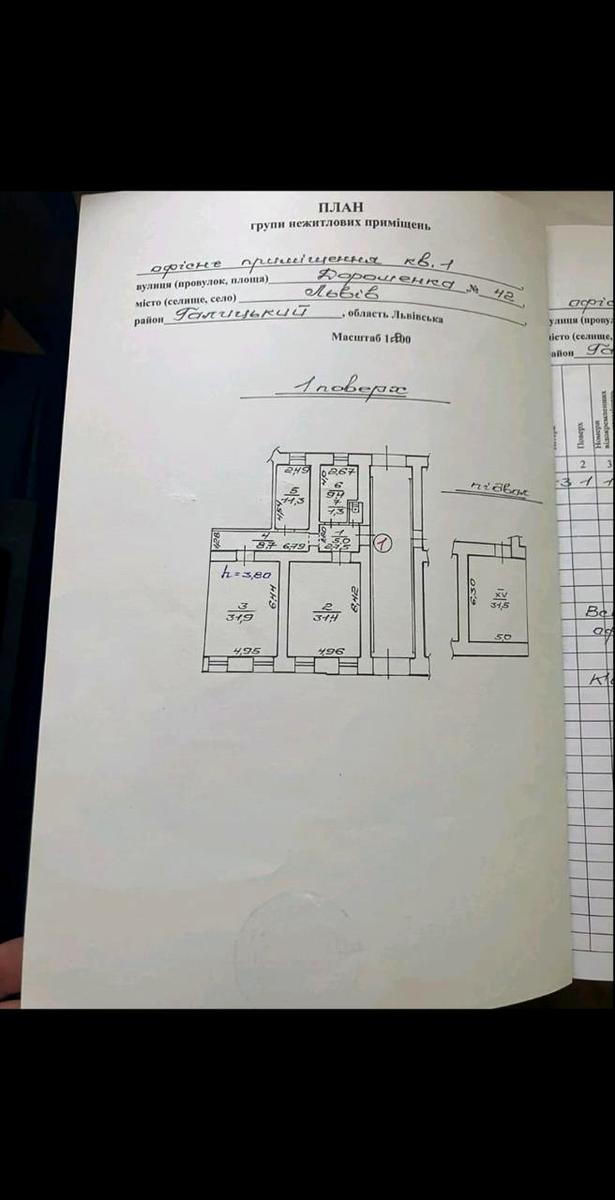 ПЛАН
групи нежитлових приміщень
офісне приміщення кв. 1
вулиця (провулок, площа) Дорошенка № 42
місто (селище, село) Львів
район Галицький, область Львівська
Масштаб 1:100
1 поверх
2,49
5
11,3
4,54
2,67
6
9,4
7
1,3
4
8,7
6,79
1,28
1
5,0
1
h=3,80
3
31,9
6,44
4,95
2
31,4
6,42
4,96
підвал
6,30
XV
31,5
5,0
офіс
вулиця (провул
місто (селище,
район Га
Поверх
Номери
відокремлених
2
3
3
1
1